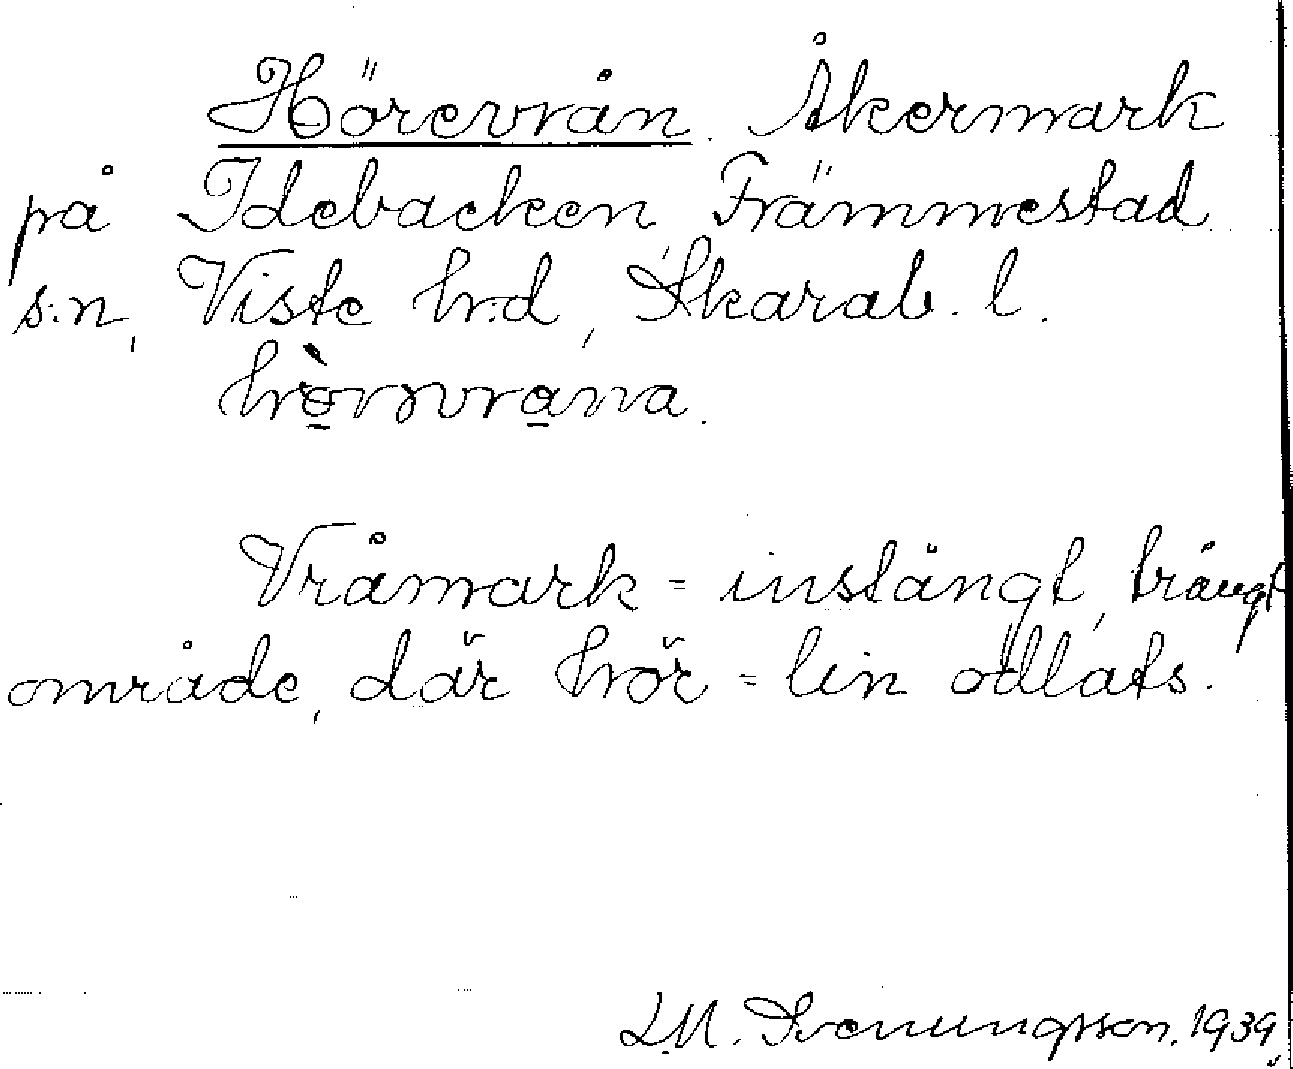 Hörevrån. Åkermark
på Idebacken, Främmestad
s:n, Viste h:d, Skarab. l.
Vråmark = instängt, trångt
område, där hör = lin odlats.
L.M. Svenungsson. 1939.